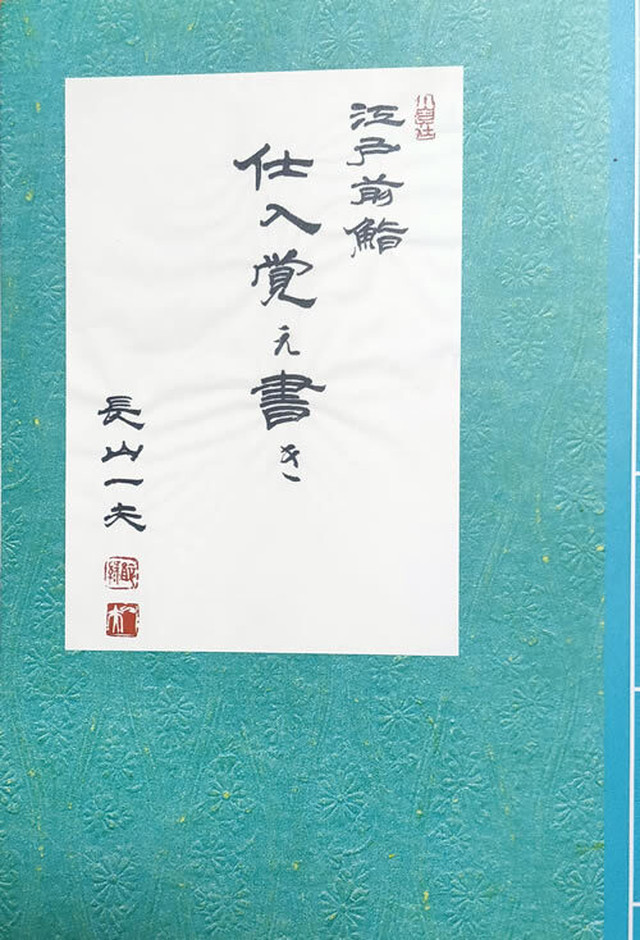 江戸前鮨
仕入覚え書き
長山一夫